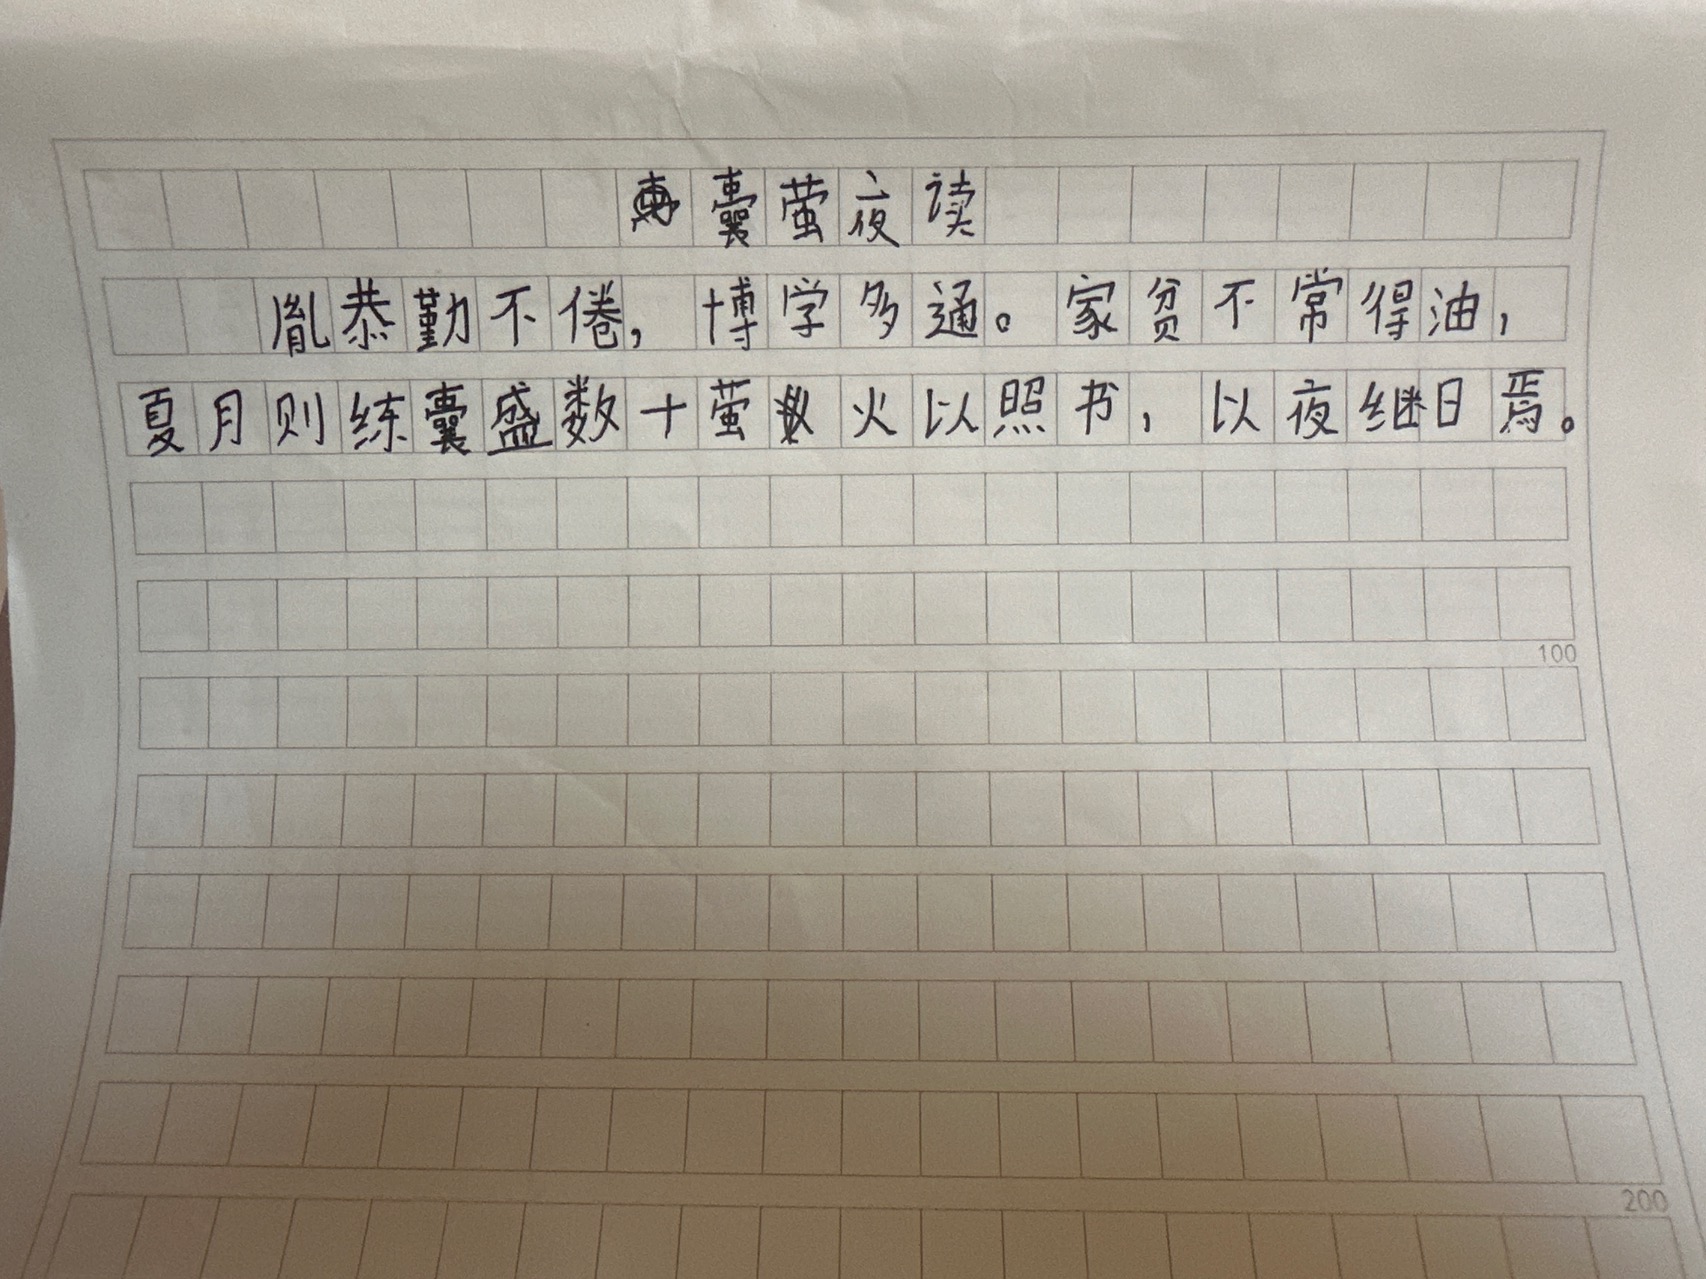 囊萤夜读
胤恭勤不倦，博学多通。家贫不常得油，
夏月则练囊盛数十萤火以照书，以夜继日焉。
100
200